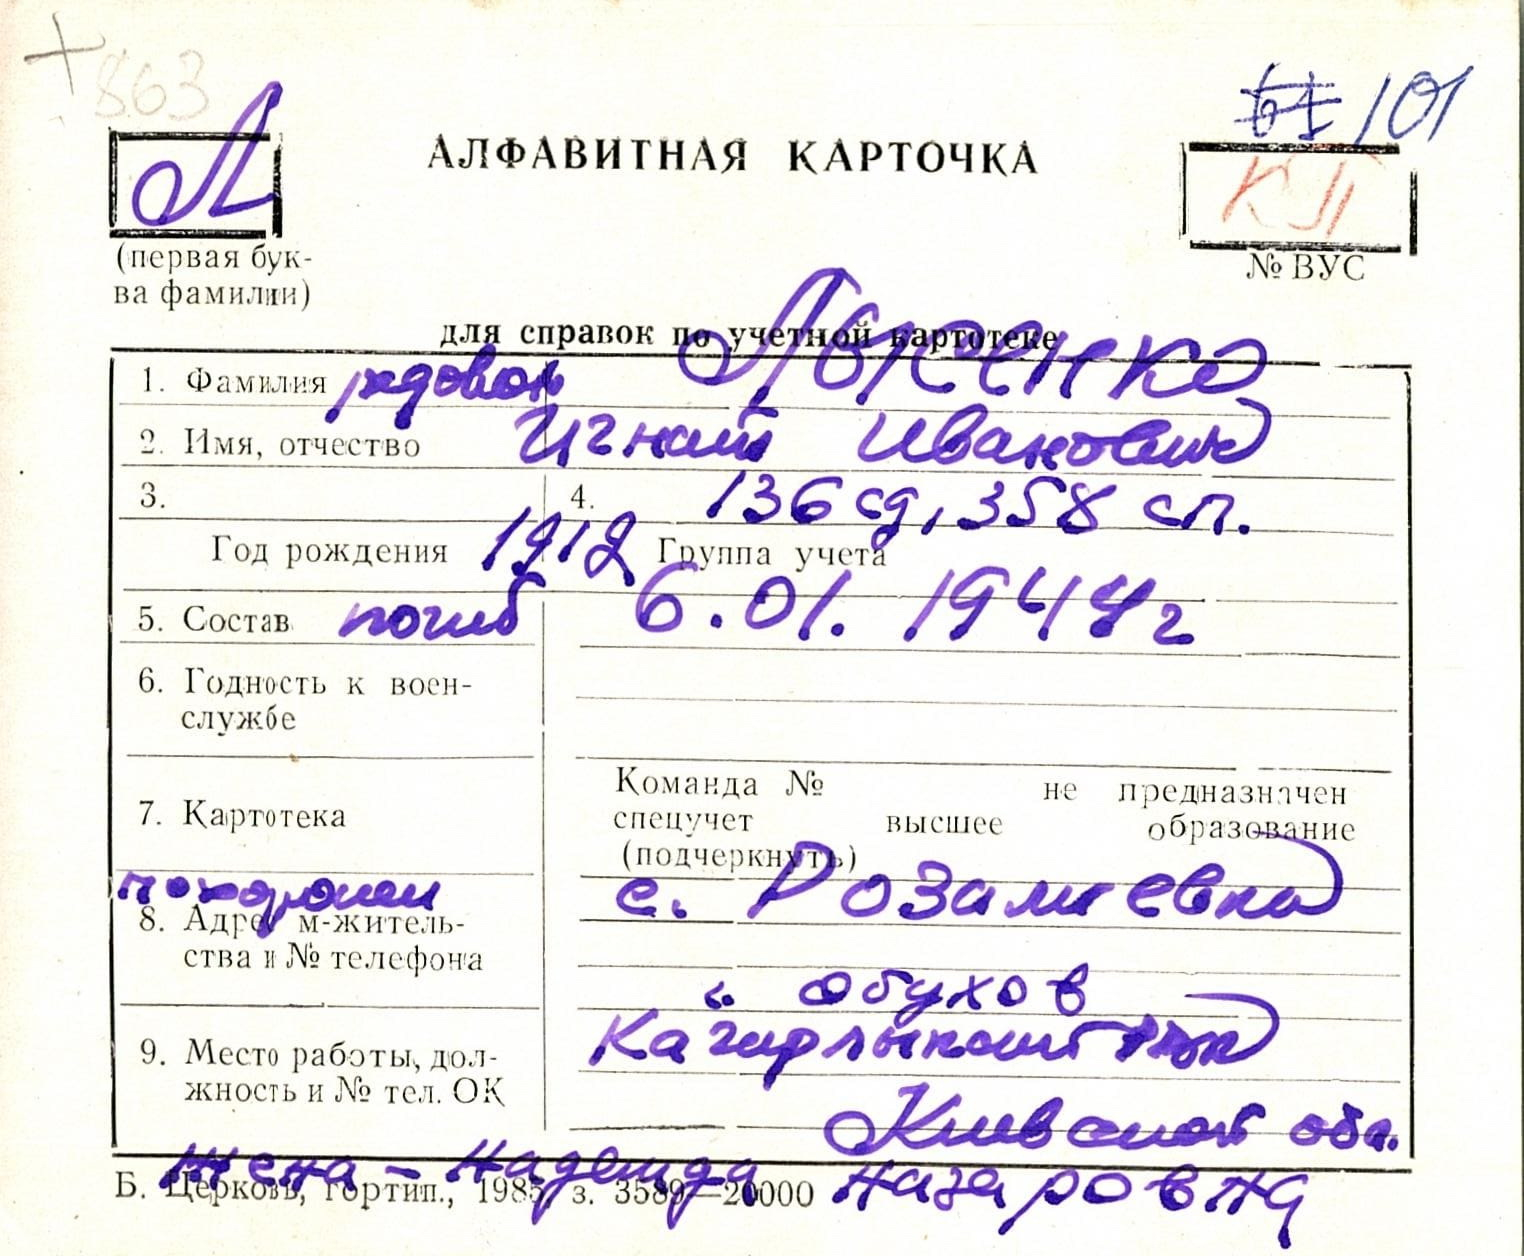 + 863
61 101
Л
АЛФАВИТНАЯ КАРТОЧКА
КП
(первая бук-
ва фамилии)
№ ВУС
для справок по учетной картотеке
1. Фамилия рядовой Лысенко
2. Имя, отчество Игнат Иванович
3. 4. 136 сд, 358 сп.
Год рождения 1912 Группа учета
5. Состав погиб 6.01.1944г
6. Годность к воен-
службе
7. Картотека
Команда № не предназначен
спецучет высшее образование
(подчеркнуть)
похоронен с.
8. Адрес м-житель-
ства и № телефона
с. Обухов
9. Место работы, дол-
жность и № тел. ОК
Киевской обл.
Жена - Надежда Назаровна
Б. Церковь, гортип., 1985 з. 3589—20000